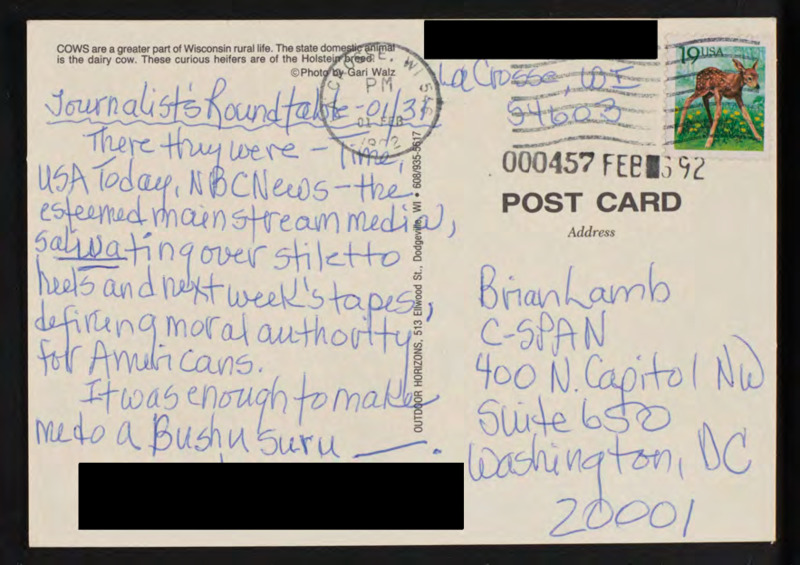 COWS are a greater part of Wisconsin rural life. The state domestic animal
is the dairy cow. These curious heifers are of the Holstein breed.
©Photo by Gari Walz
Journalist's Roundtable - 01/31
There they were - Time,
USA Today, NBC News - the
esteemed mainstream media,
salivating over stiletto
heels and next week's tapes,
defining moral authority
for Americans.
It was enough to make
me do a Bushu suru —.
OUTDOOR HORIZONS, 513 Ellwood St., Dodgeville, WI • 608/935-5617
LA CROSSE, WI
PM
01 FEB
1992
19 USA
La Crosse, WI
54603
000457 FEB 92
POST CARD
Address
Brian Lamb
C-SPAN
400 N. Capitol NW
Suite 650
Washington, DC
20001